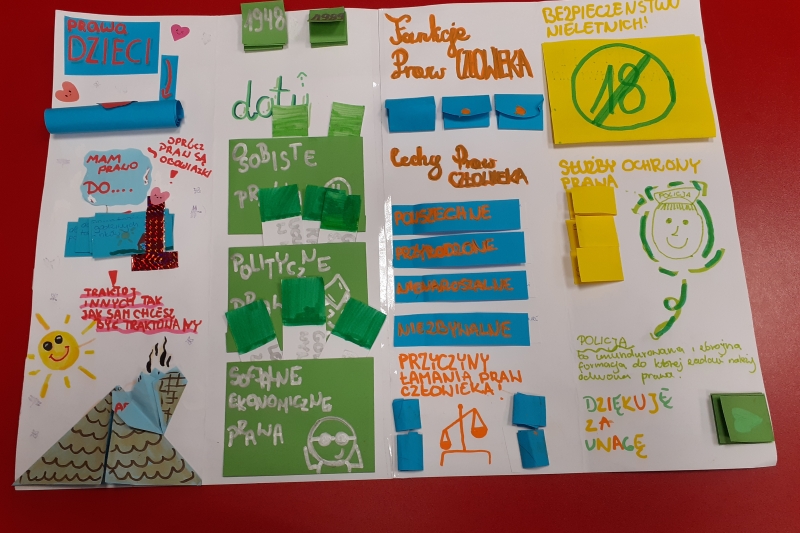 PRAWA
DZIECI
MAM
PRAWO
DO....
OPRÓCZ
PRAW SĄ
OBOWIĄZKI
!
TRAKTUJ
INNYCH TAK
JAK SAM CHCESZ
BYĆ TRAKTOWANY
1948
daty
OSOBISTE
POLITYCZNE
SOCJALNE
EKONOMICZNE
PRAWA
Funkcje
Praw CZŁOWIEKA
Cechy Praw
CZŁOWIEKA
POWSZECHNE
PRZYRODZONE
NIENARUSZALNE
NIEZBYWALNE
PRZYCZYNY
ŁAMANIA PRAW
CZŁOWIEKA!
BEZPIECZEŃSTWO
NIELETNICH!
18
SŁUŻBY OCHRONY
PRAWA
POLICJA
POLICJA
to umundurowana i zbrojna
formacja do której zadań należy
ochrona prawa.
DZIĘKUJĘ
ZA
UWAGĘ